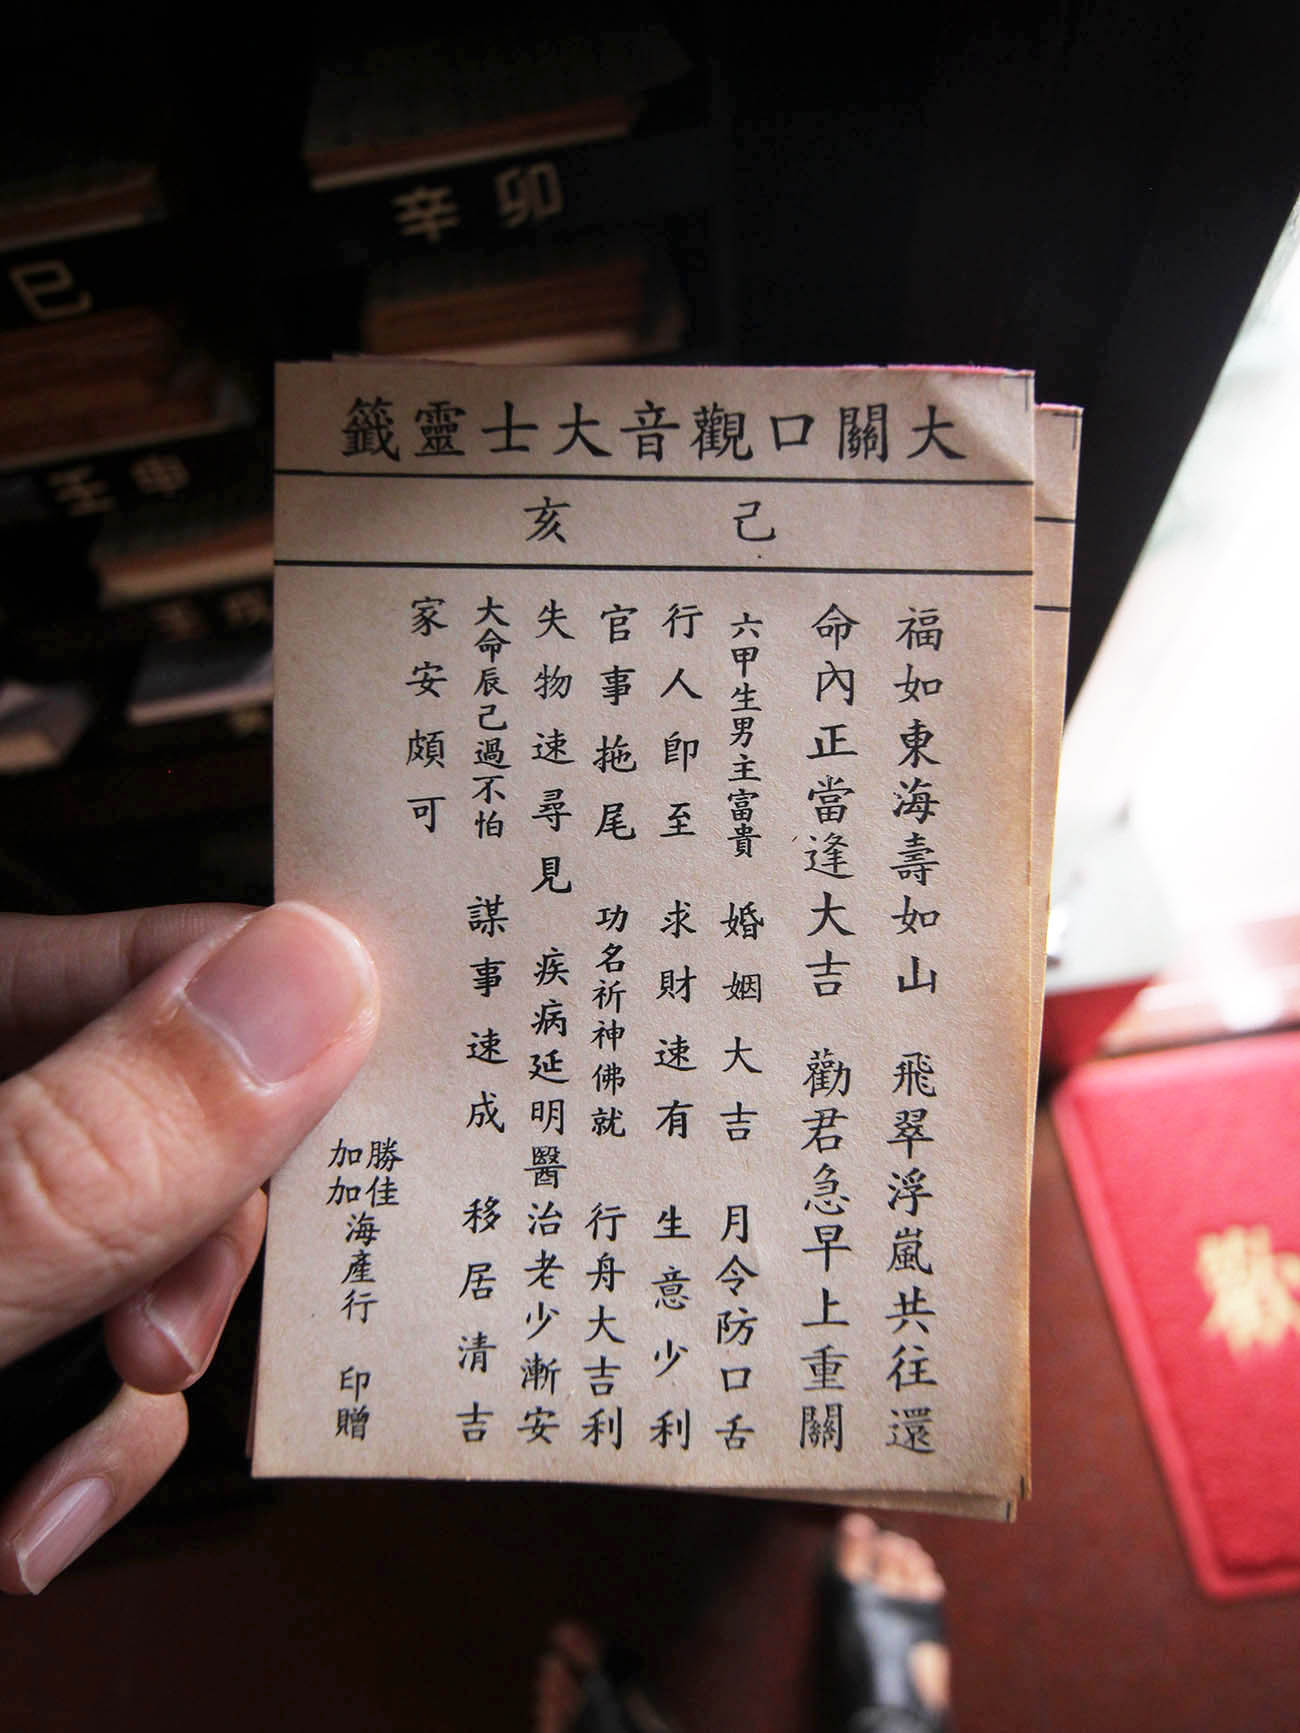 辛卯
巳
壬申
大關口觀音大士靈籤
己亥
福如東海壽如山 飛翠浮嵐共往還
命內正當逢大吉 勸君急早上重關
六甲生男主富貴 婚姻大吉 月令防口舌
行人即至 求財速有 生意少利
官事拖尾 功名祈神佛就 行舟大吉利
失物速尋見 疾病延明醫治老少漸安
大命辰己過不怕 謀事速成 移居清吉
家安頗可
勝佳
加加
海產行 印贈